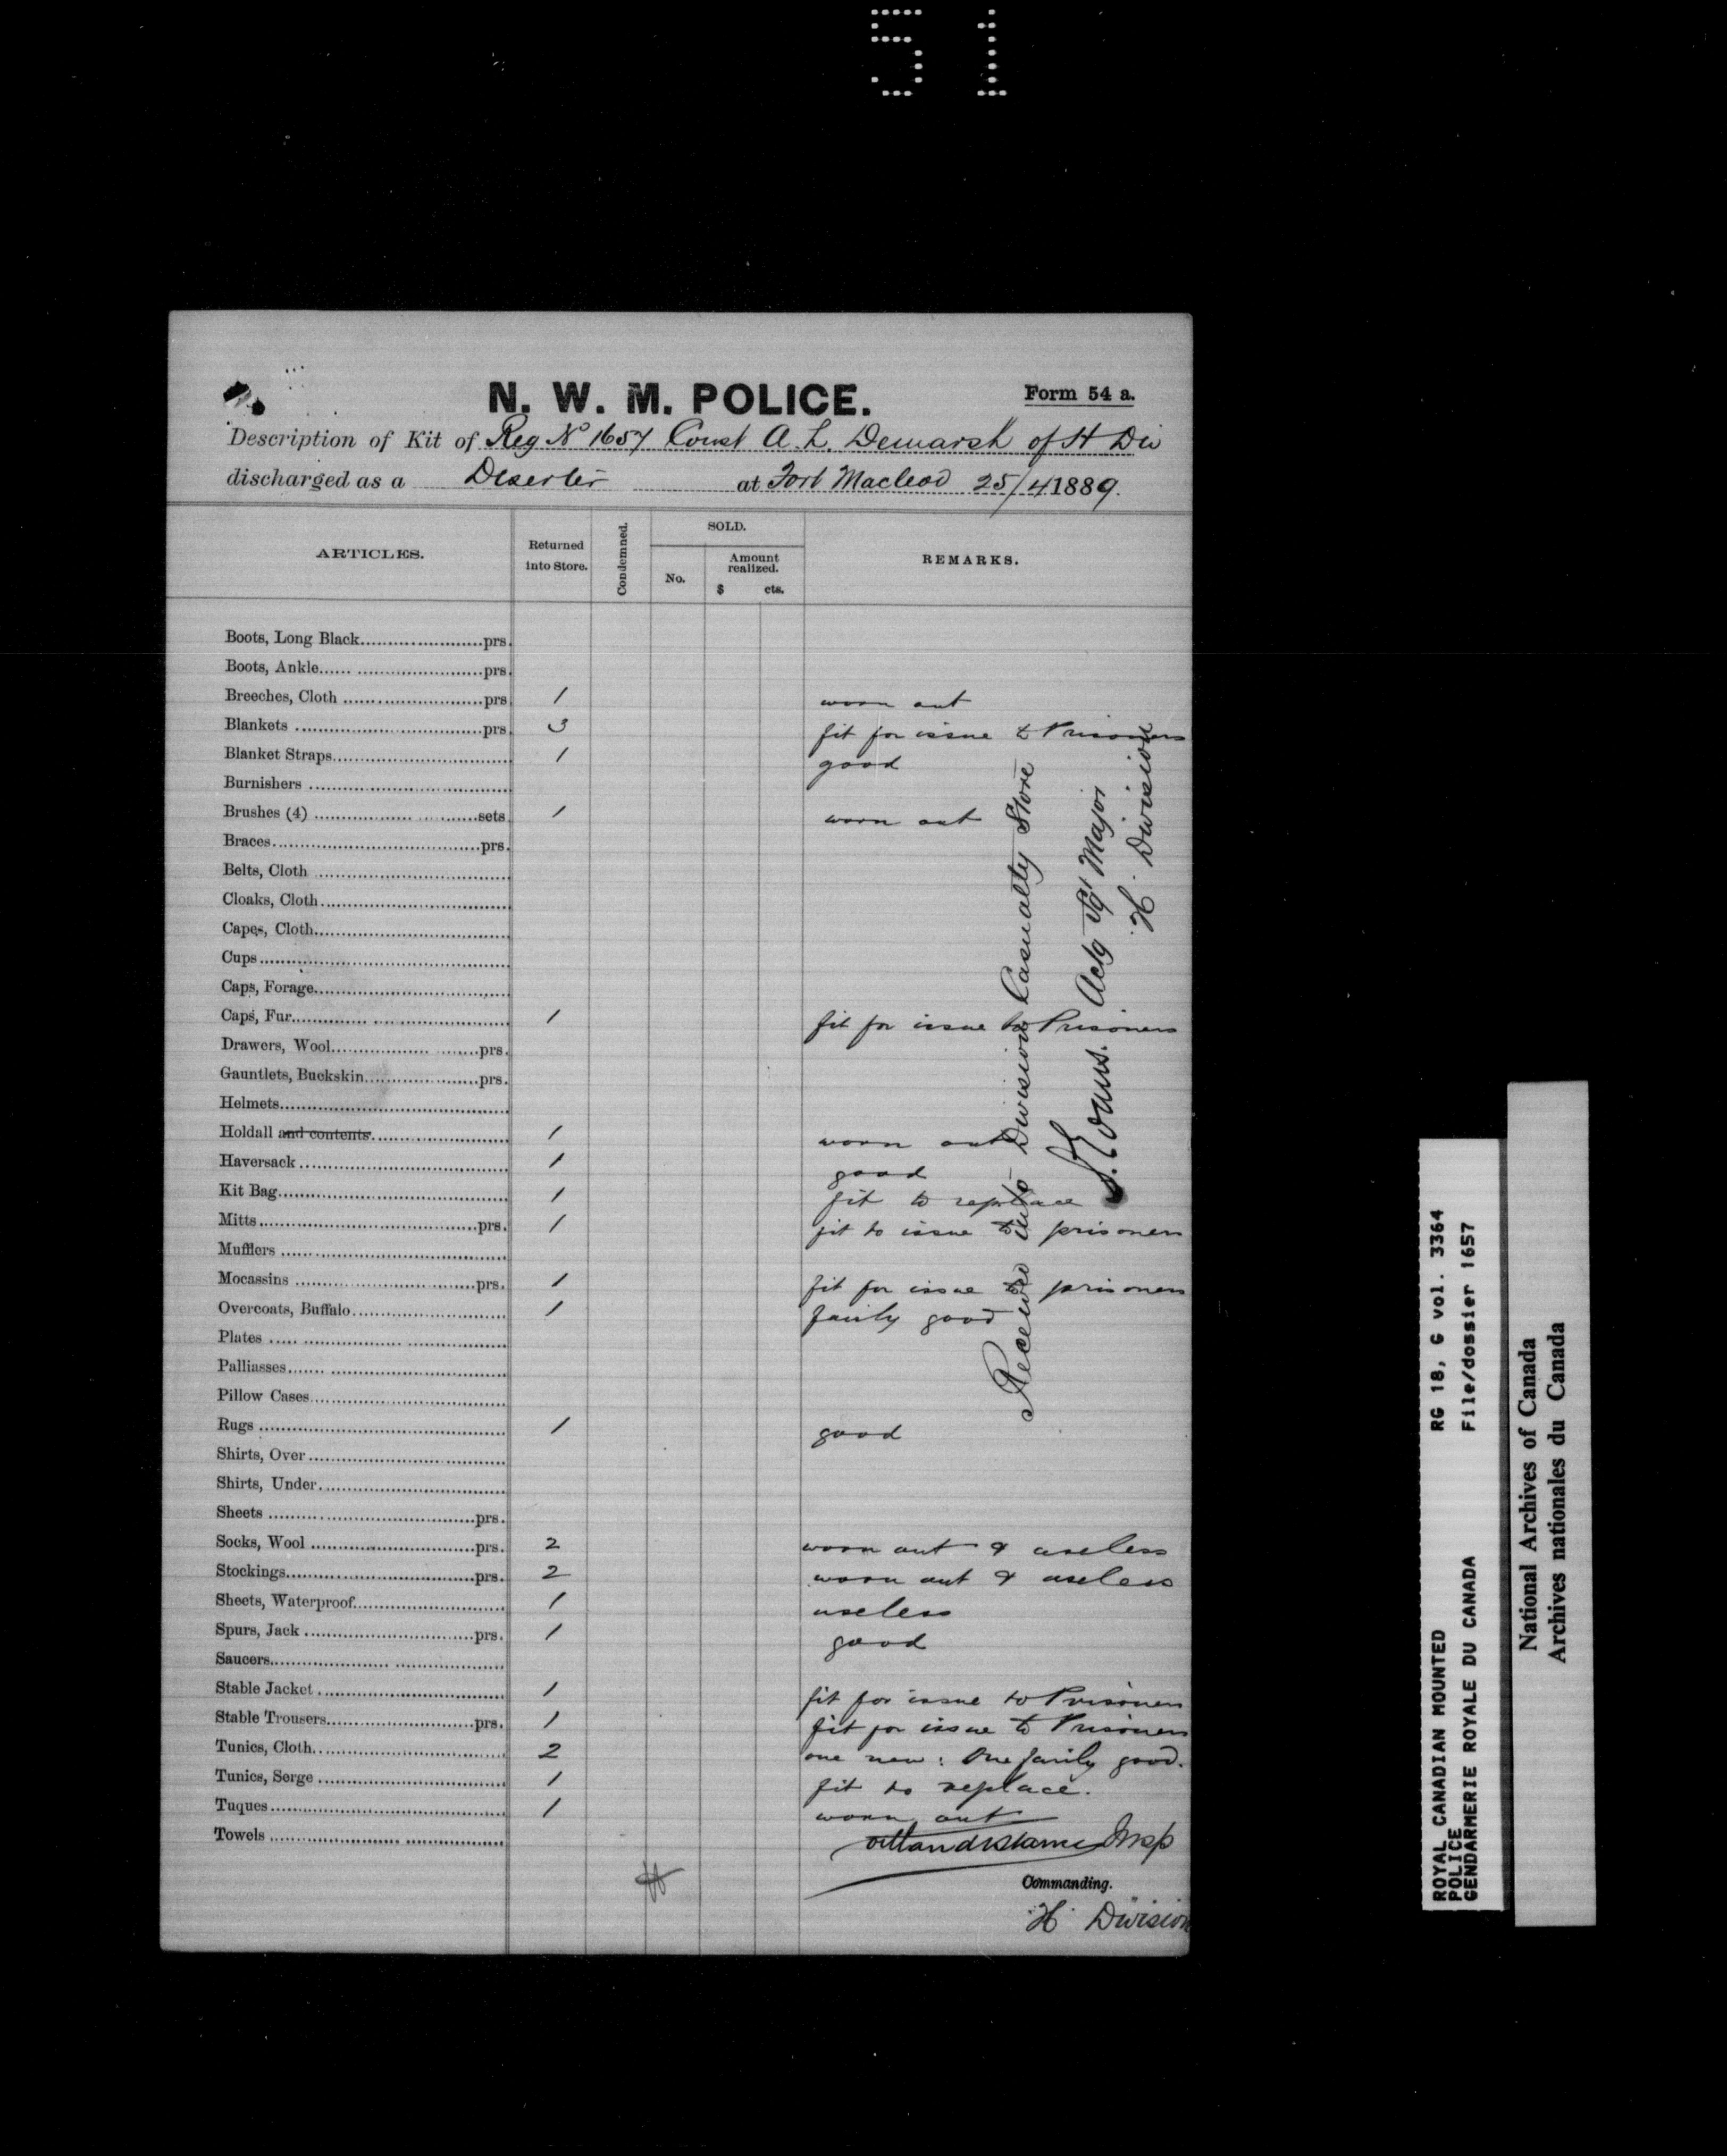 51
N. W. M. POLICE.
Form 54 a.
Description of Kit of Reg No 1657 Const A. L. Demarsh of H Div
discharged as a Deserter at Fort Macleod 25/4 1889.
ARTICLES.
Returned into Store.
Condemned.
SOLD.
No.
Amount realized.
$ cts.
REMARKS.
Boots, Long Black prs.
Boots, Ankle prs.
Breeches, Cloth prs 1 worn out
Blankets prs. 3 fit for issue to Prisoners
Blanket Straps 1 good
Burnishers
Brushes (4) sets 1 worn out
Braces prs.
Belts, Cloth
Cloaks, Cloth
Capes, Cloth
Cups
Caps, Forage
Caps, Fur 1 fit for issue to Prisoners
Drawers, Wool prs.
Gauntlets, Buckskin prs.
Helmets
Holdall and contents 1 worn out
Haversack 1 good
Kit Bag 1 fit to replace
Mitts prs. 1 fit to issue to prisoners
Mufflers
Mocassins prs. 1 fit for issue to prisoners
Overcoats, Buffalo 1 fairly good
Plates
Palliasses
Pillow Cases
Rugs 1 good
Shirts, Over
Shirts, Under
Sheets prs.
Socks, Wool prs. 2 worn out & useless
Stockings prs. 2 worn out & useless
Sheets, Waterproof 1 useless
Spurs, Jack prs. 1 good
Saucers
Stable Jacket 1 fit for issue to Prisoners
Stable Trousers prs. 1 fit for issue to Prisoners
Tunics, Cloth 2 one new: One fairly good.
Tunics, Serge 1 fit to replace.
Tuques 1 worn out
Towels
Insp
Commanding.
"H" Division
H
Received into Division Casualty Store
Evans. Actg Sgt Major
"H" Division
ROYAL CANADIAN MOUNTED POLICE
GENDARMERIE ROYALE DU CANADA
RG 18, G vol. 3364
File/dossier 1657
National Archives of Canada
Archives nationales du Canada